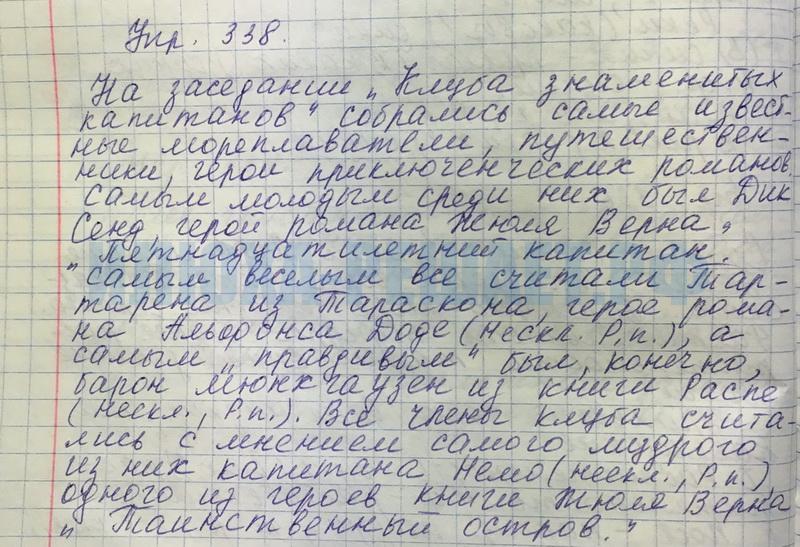 Упр. 338.
На заседании „Клуба знаменитых
капитанов" собрались самые извест-
ные мореплаватели, путешествен-
ники, герои приключенческих романов.
Самым молодым среди них был Дик
Сенд, герой романа Жюля Верна „
„Пятнадцатилетний капитан.
Самым веселым все считали Тар-
тарена из Тараскона, героя рома-
на Альфонса Доде (нескл. Р.п.), а
самым „правдивым" был, конечно,
барон Мюнхгаузен из книги Распе
(нескл., Р.п.). Все члены клуба счита-
лись с мнением самого мудрого
из них капитана Немо (нескл., Р.п.),
одного из героев книги Жюля Верна
„Таинственный остров."